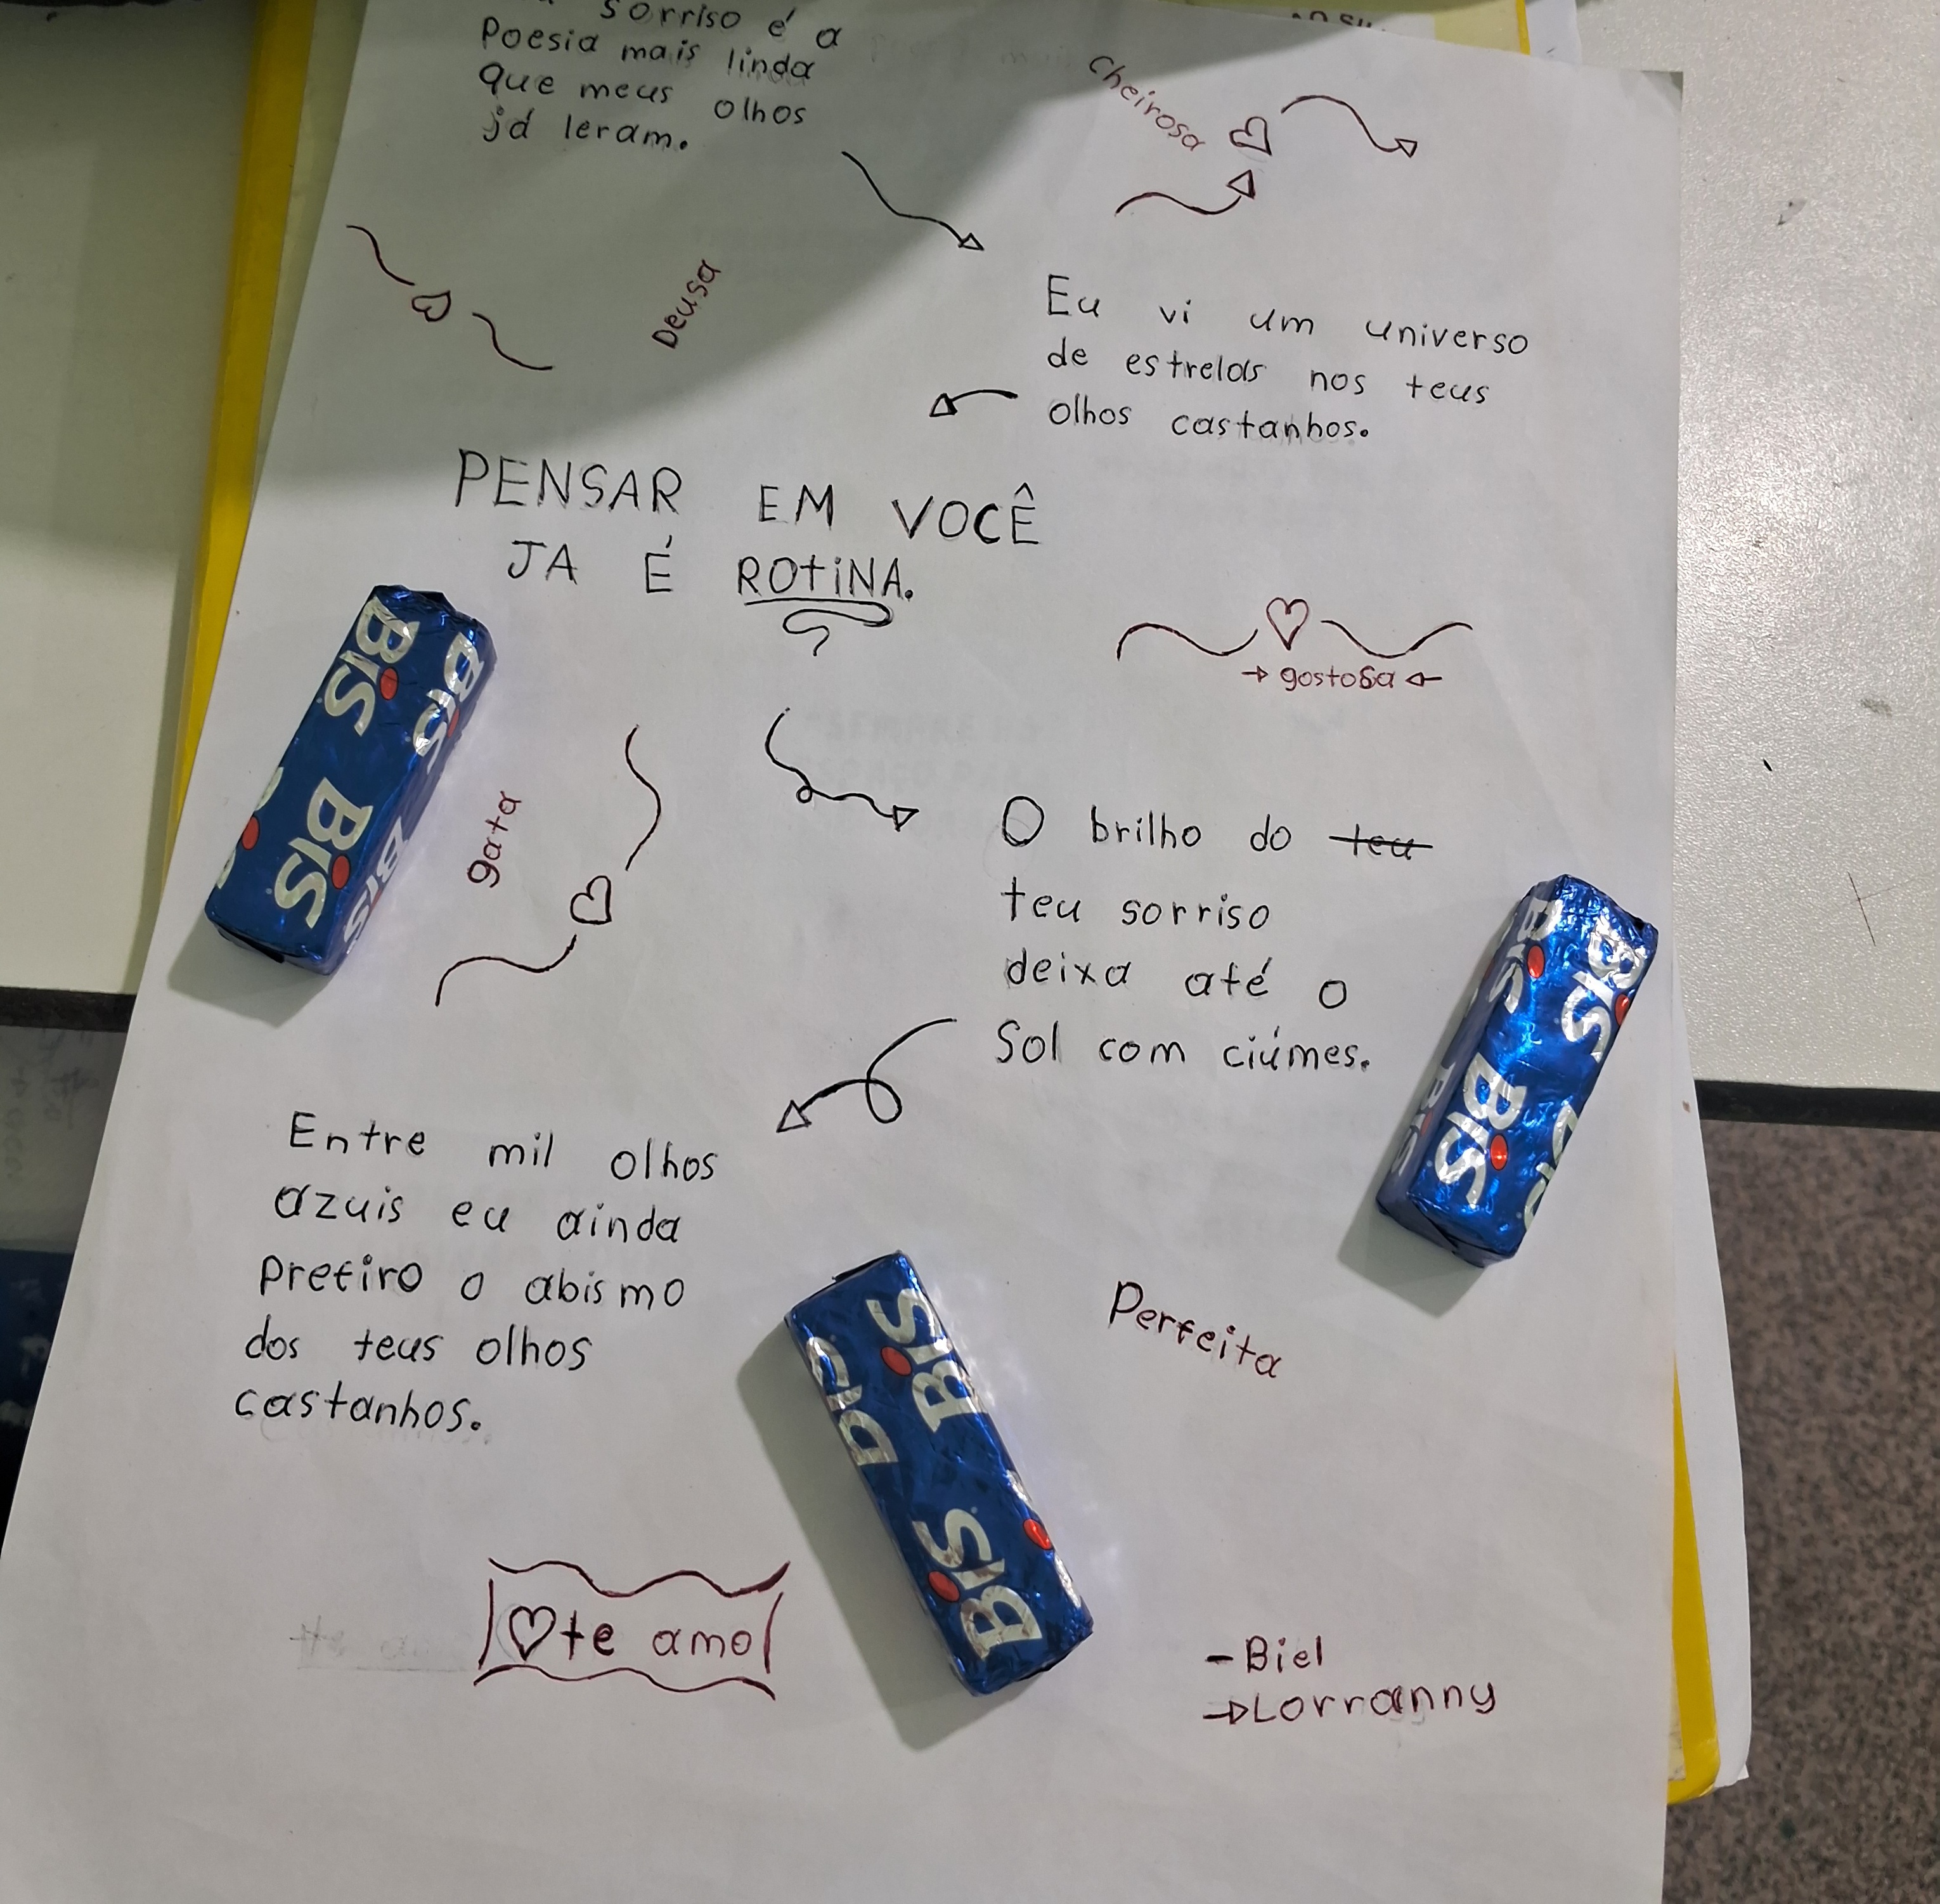 sorriso é a
Poesia mais linda
que meus olhos
já leram.
Cheirosa
Deusa
Eu vi um universo
de estrelas nos teus
olhos castanhos.
PENSAR EM VOCÊ
JA É ROtiNA.
→ gostosa ←
gata
O brilho do teu
teu sorriso
deixa até o
Sol com ciúmes.
Entre mil olhos
azuis eu ainda
Prefiro o abismo
dos teus olhos
castanhos.
Perfeita
♡te amo
- Biel
→Lorranny
BIS
BIS
BIS
BIS
BIS
BIS
BIS
BIS
BIS
BIS